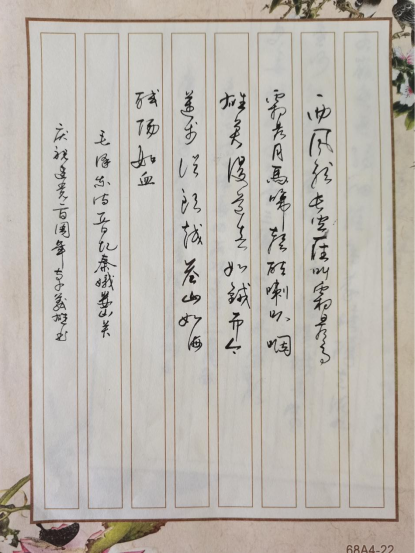 西风烈长空雁叫霜晨月
霜晨月馬蹄声碎喇叭咽
雄关漫道真如鐵而今
迈步從头越苍山如海
残阳如血
毛泽东诗一首忆秦娥娄山关
庆祝建党一百周年李义雄书
68A4-22